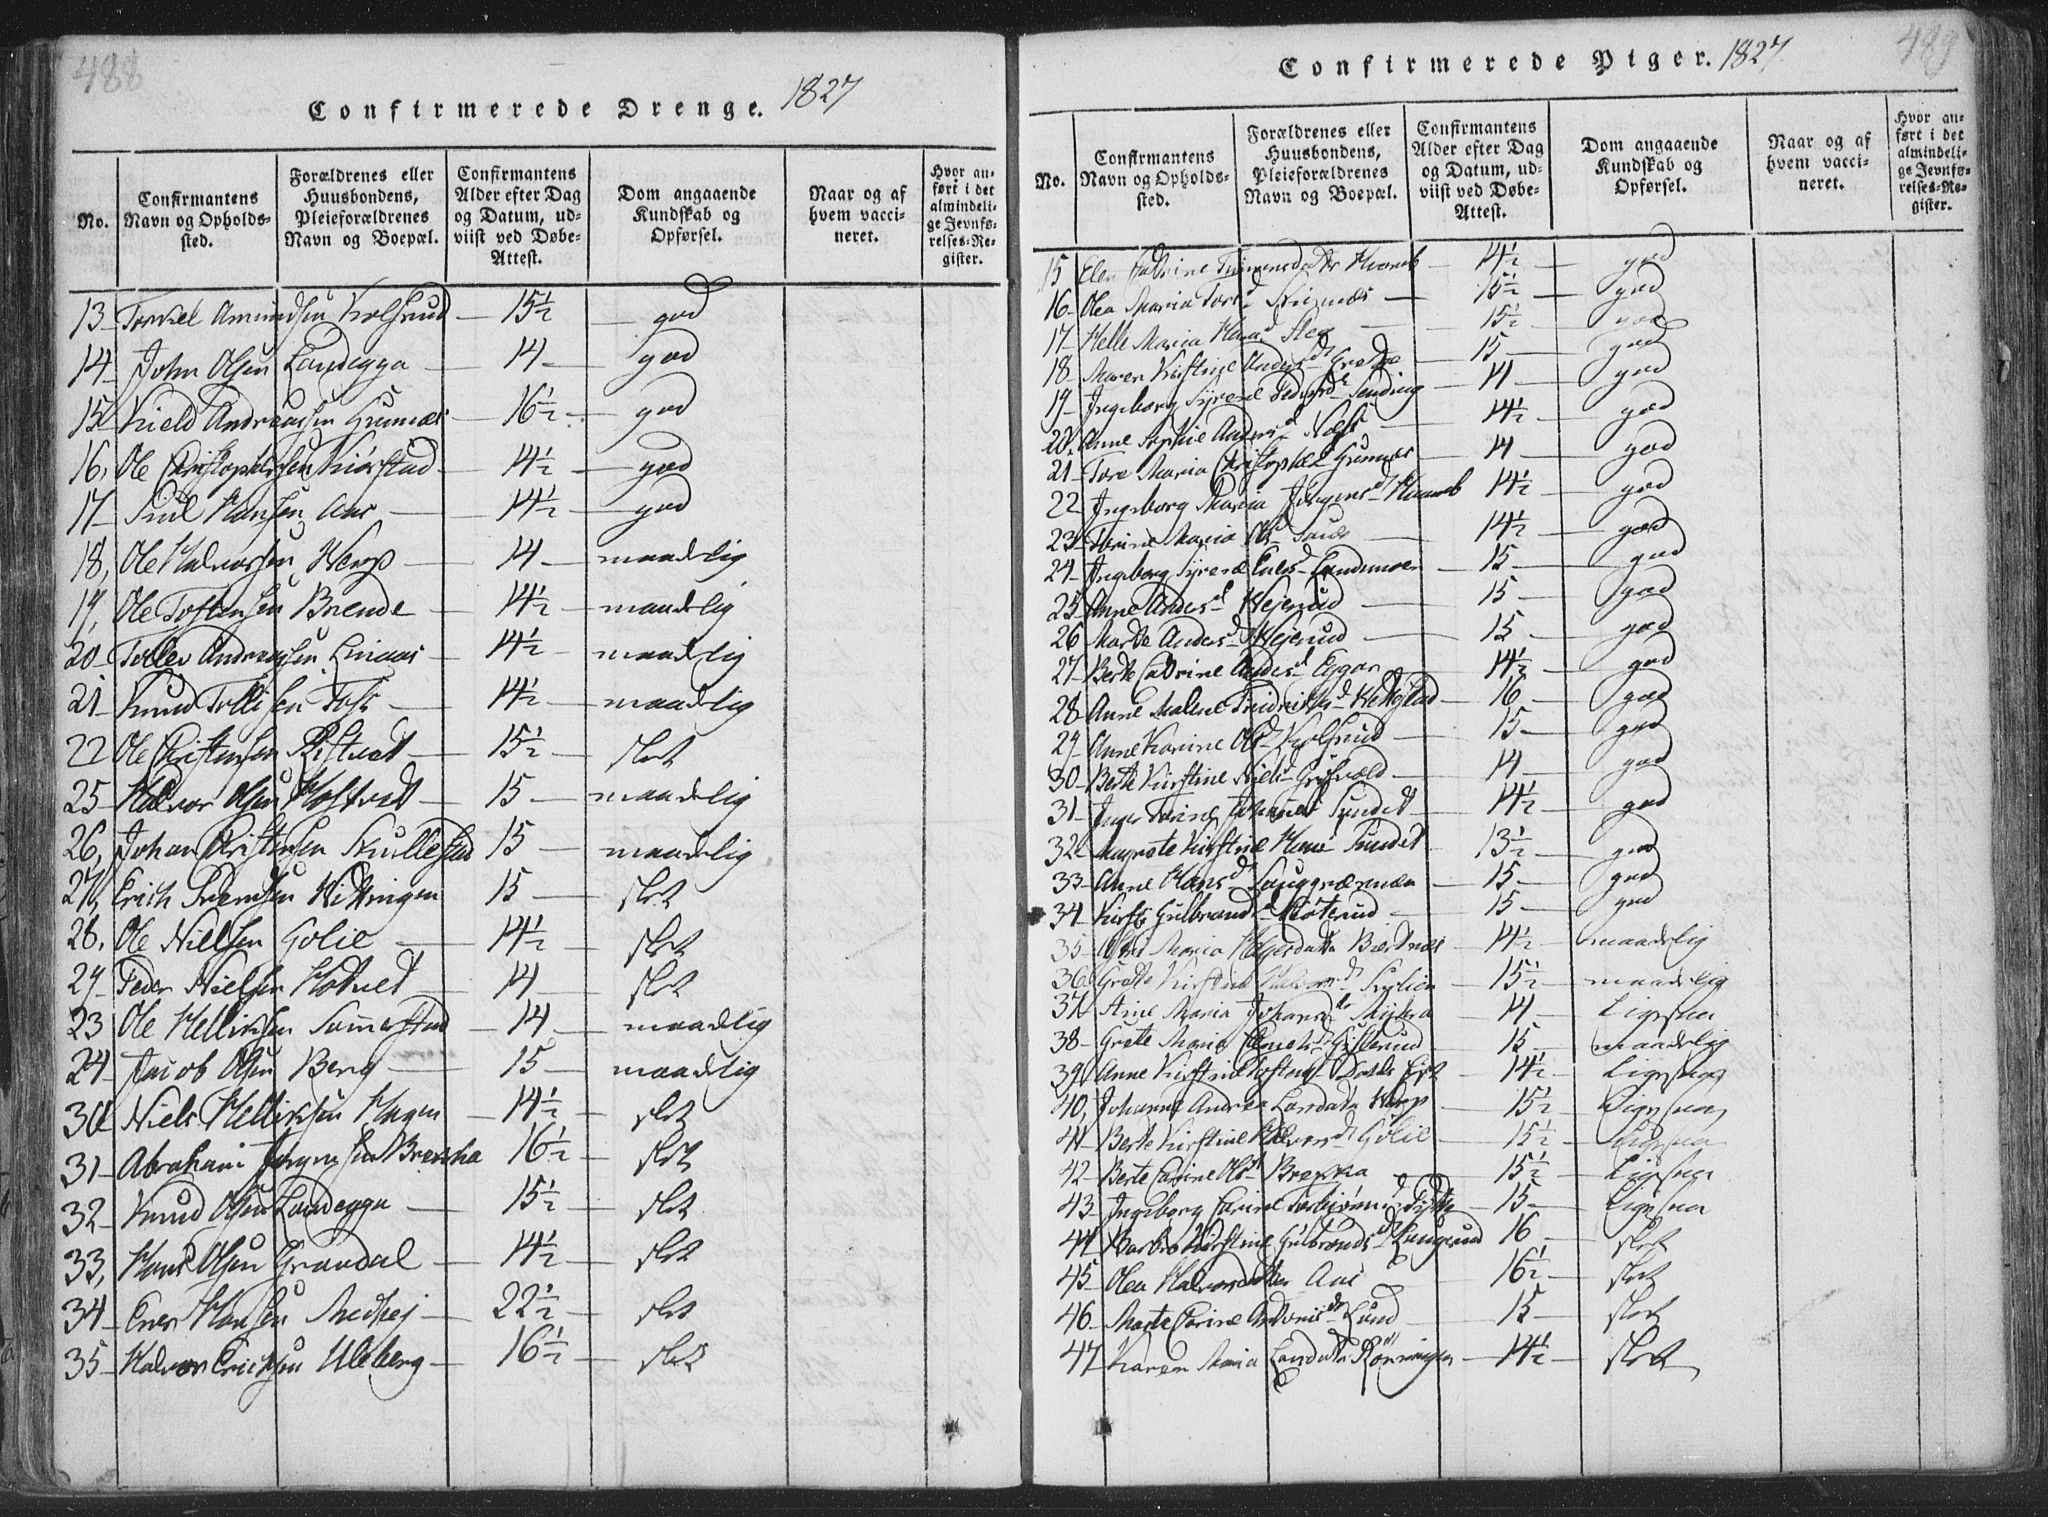 488
Confirmerede Drenge. 1827
No.
Confirmantens Navn og Opholds-sted.
Forældrenes eller Huusbondens, Pleieforældrenes Navn og Boepæl.
Confirmantens Alder efter Dag og Datum, ud-viist ved Døbe-Attest.
Dom angaaende Kundskab og Opførsel.
Naar og af hvem vacci-neret.
Hvor an-ført i det almindeli-ge Jevnfø-relses-Re-gister.
13 Torkel Amundsen Kolsrud 15½ god
14 John Olsen Landegga 14 god
15 Kield Andreassen Gumnæs 16½ god
16, Ole Christophersen Kiørstad 14½ god
17 Hansen Aas 14½ god
18, Ole Halvorsen Werp 14 maadelig
19, Ole Tostensen Brende 14½ maadelig
20 Tollev Andreassen Linaas 14½ maadelig
21 Knud Tollefsen 14½ maadelig
22 Ole Christensen Ristvedt 15½ slet
25 Halvor Olsen Hostvedt 15 maadelig
26, Johan Christensen Skullestad 15 maadelig
27, Erich Svendsen Hittingen 15 slet
28. Ole Nielsen Golie 14½ slet
29 Peder Nielsen Hotvet 14 slet
23 Ole Helliksen Sommerstad 14 maadelig
24 Jacob Olsen Berg 15 maadelig
30 Niels Helliksen Hagen 14½ slet
31 Abraham Jørgensen Brecka 16½ slet
32 Knud Olsen Landegga 15½ slet
33, Hans Olsen Grandal 14½ slet
34 Ener Hansen 22½ slet
35 Halvor Ericksen Uleberg 16½ slet
489
Confirmerede Piger. 1827.
No.
Confirmantens Navn og Opholds-sted.
Forældrenes eller Huusbondens, Pleieforældrenes Navn og Boepæl.
Confirmantens Alder efter Dag og Datum, ud-viist ved Døbe-Attest.
Dom angaaende Kundskab og Opførsel.
Naar og af hvem vacci-neret.
Hvor an-ført i det almindeli-ge Jevnfø-relses-Re-gister.
15 Elen Cathrine 14½ god
16 Olea Maria Tors 15½ god
17 Helle Maria Hans 15½ god
18 Maren Kirstine Anders 15 god
19 Ingeborg Sirene Peders 14 god
20. Anne Sophie Anders Næss 14½ god
21 Tore Maria Christophers Gumnæs 14 god
22 Ingeborg Maria Jørgens 14½ god
23 Torine Maria Ols 14½ god
24 Ingeborg Sirene Eners Landemoen 15 god
25 Anne Anders Hejerud 15 god
26 Marthe Anders Hejerud 15 god
27 Berte Cathrine Anders 14½ god
28 Anne Malene Fridriks 16 god
29 Anne Karine Ols Kolsrud 15 god
30 Berte Kirstine Niels 14 god
31 Inger Torine Johannes Sundet 14½ god
32 Magrete Kirstine Hans Sundet 13½ god
33 Anne Hans 15 god
34 Kirsti Gulbrands 15 god
35 Maria Helgesdatter Biertnæs 14½ maadelig
36 Grethe Kirstine Halvors 15½ maadelig
37 Anne Maria Johans Myhra 14 Ligesaa
38 Grete Maria Gullerud 15 maadelig
39, Anne Kirstine Tostens 14½ Ligesaa
40, Johanne Andrea Werp 15½ Ligesaa
41 Berte Kirstine Halvors Golie 15½ Ligesaa
42 Berte Carine Ols Brecka 15½ Ligesaa
43 Ingeborg Carine Torbjørns 15 Ligesaa
44 Barbro Kirstine Gulbrands 16 slet
45 Olea Halvorsdatter Aas 16½ slet
46 Marte Carine Lund 15 slet
47 Karen Maria Rønningen 14½ slet